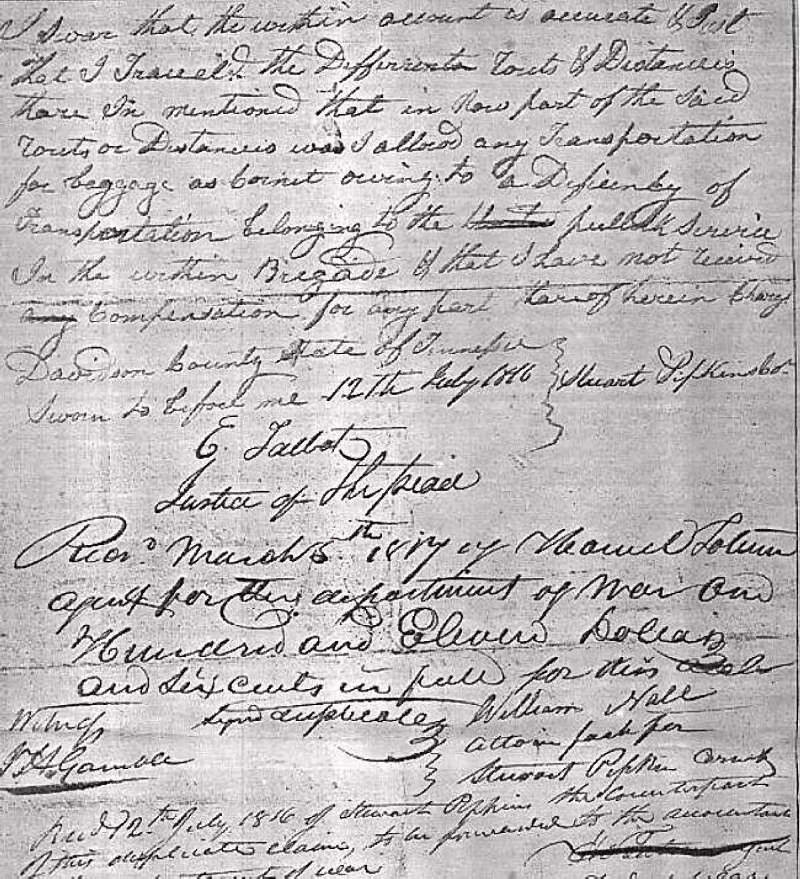 I swar that the within account is accurate & Just
that I Traveled the Differenta routs & Distances
thare In mentioned that in Now part of the Said
routs or Distances was I allowd any Transportation
for baggage as Cornet owing to a Deficienby of
Transportation belonging to the publick Service
In the within Brigade & that I have not receivd
any Compensation for any part thareof herein Charg
Davidson County State of Tennessee
Sworn to before me 12th July 1816
Stuart Pipkins Cor
E. Talbot
Justice of The peace
Recd March 5th 1817 of
agent for the department of War One
Hundred and Eleven Dollars
and six cents in full for this
Witness
Signd duplicates
William Nall
J H Gamble
attorn fact for
Stewart Pipkin Cornet
Recd 12th July 1816 of Stewart Pipkins the Counterpart
of this duplicate claim, to be forwarded to the accountant
of war